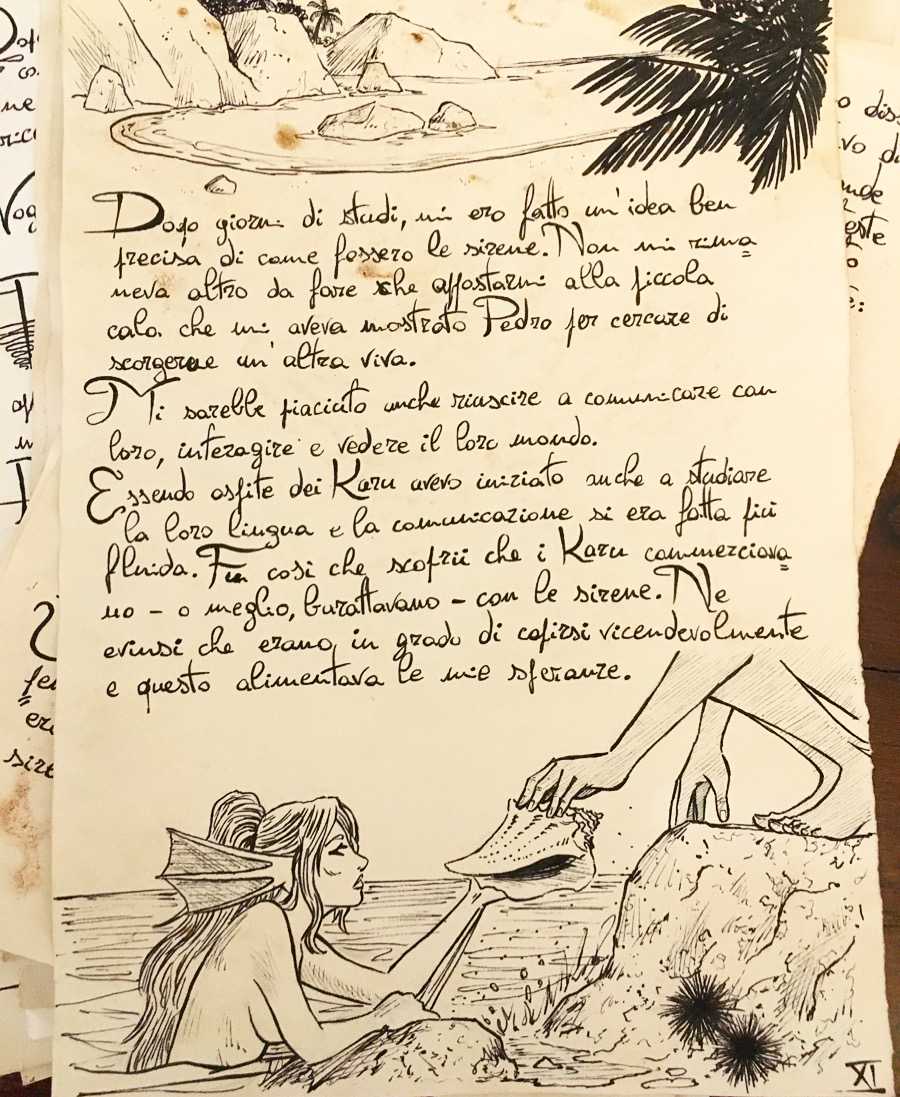 Dopo giorni di studi, mi ero fatto un'idea ben
precisa di come fossero le sirene. Non mi rima=
neva altro da fare che appostarmi alla piccola
cala che mi aveva mostrato Pedro per cercare di
scorgerne un'altra viva.
Mi sarebbe piaciuto anche riuscire a comunicare con
loro, interagire e vedere il loro mondo.
Essendo ospite dei Karu avevo iniziato anche a studiare
la loro lingua e la comunicazione si era fatta più
fluida. Fu così che scoprii che i Karu commerciava=
no - o meglio, burattavano - con le sirene. Ne
evinsi che erano in grado di capirsi vicendevolmente
e questo alimentava le mie speranze.
XI